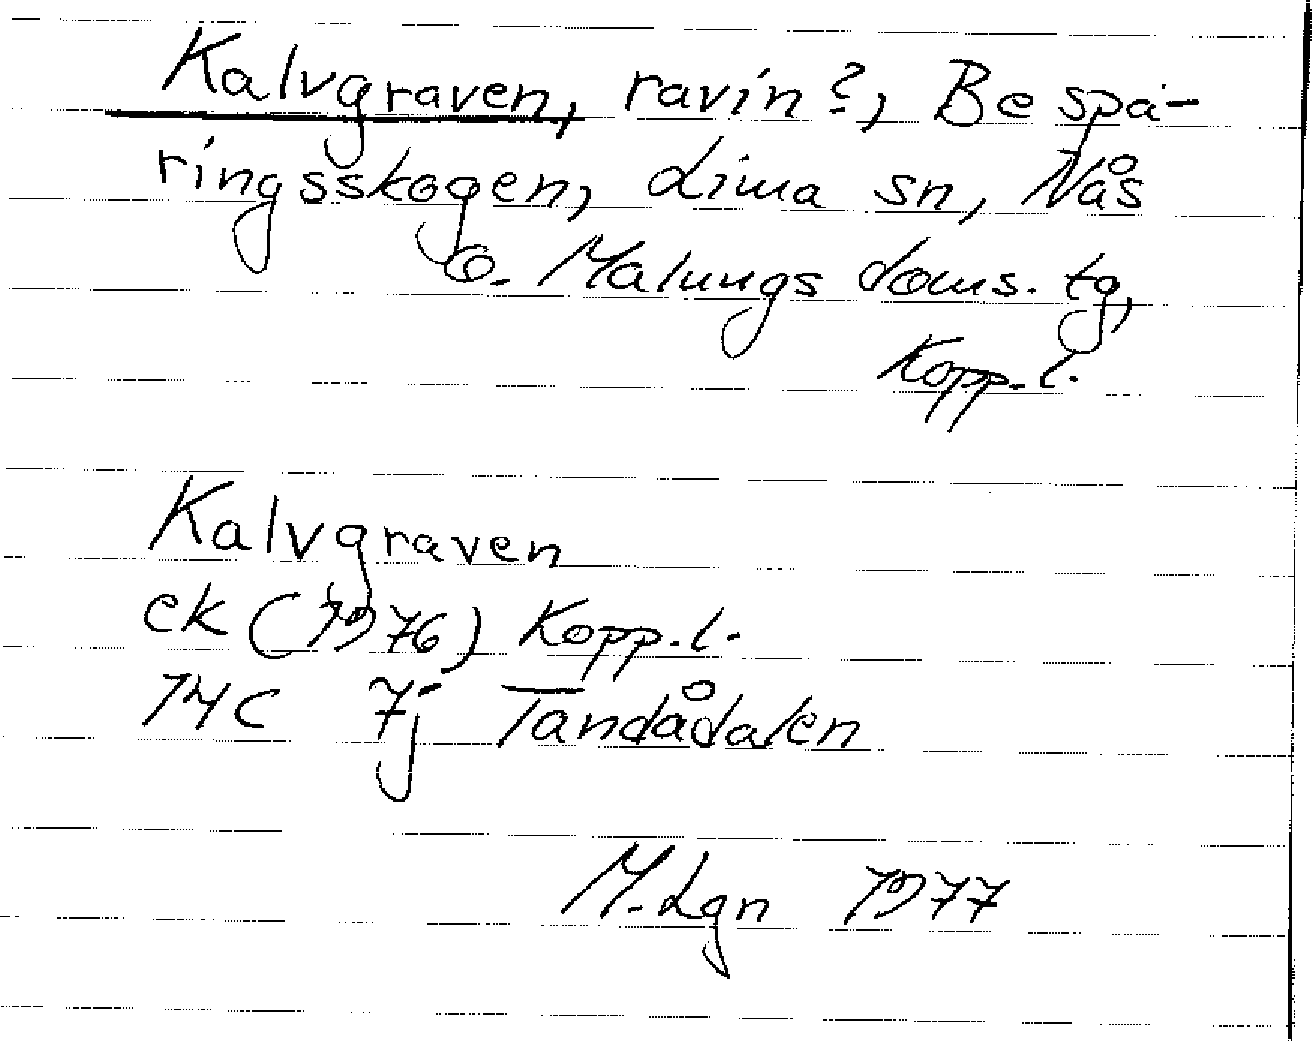 Kalvgraven, ravin?, Bespa-
ringsskogen, Lima sn, Nås
o. Malungs doms. tg,
Kopp. l.
Kalvgraven
ek (1976) Kopp. l.
14C 7j Tandådalen
M. Lgn 1977